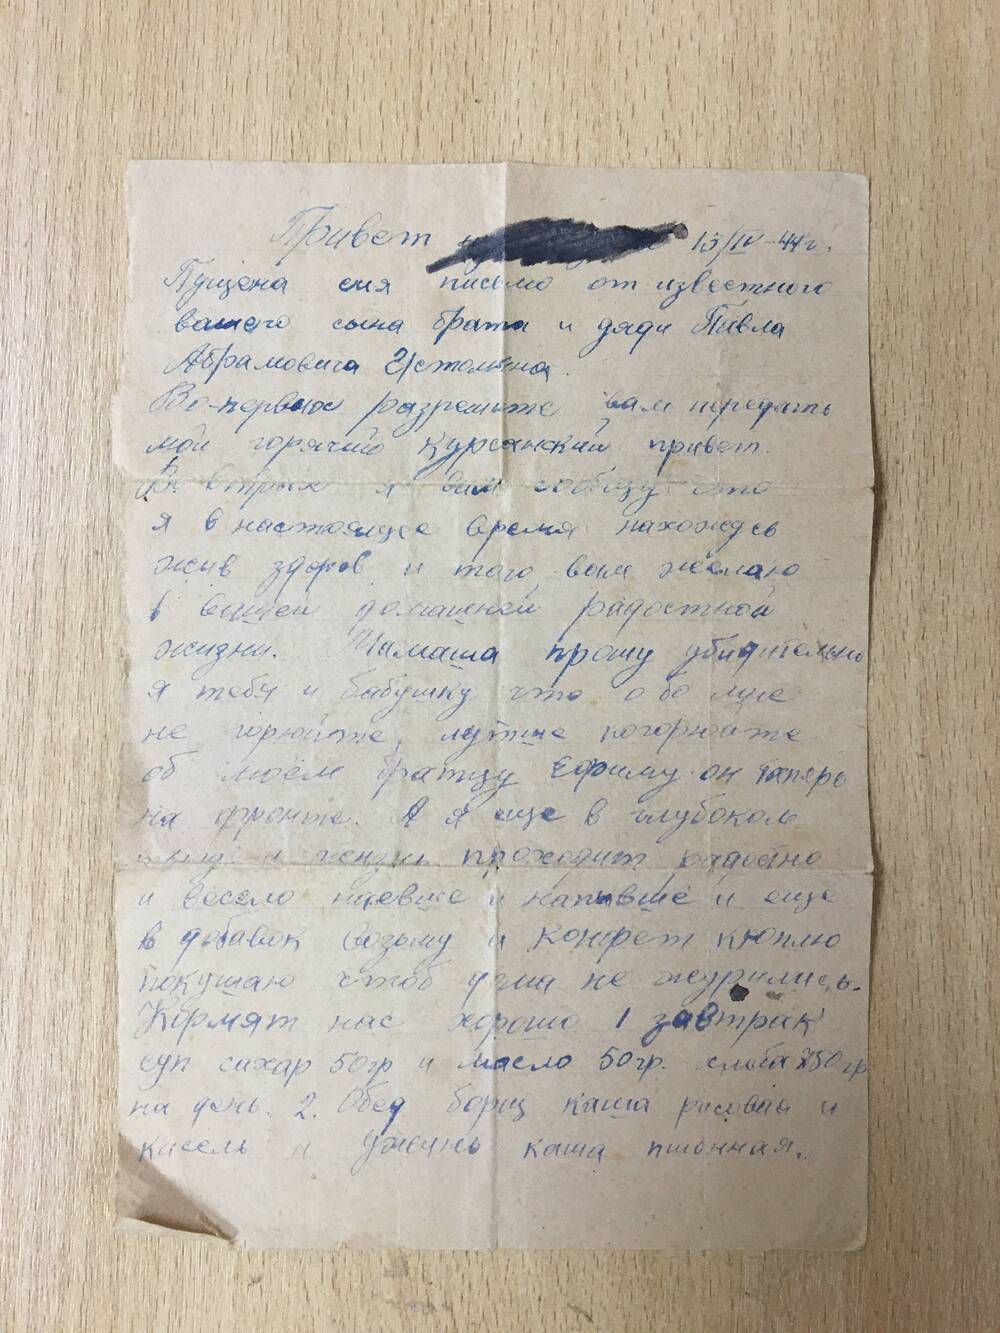 Привет 15/IV-44г.
Пущена сия письмо от известного
вашего сына брата и дяди Павла
Абрамовича
Во-первых разрешите вам передать
мой горячий курсанский привет.
Во вторых я вам сообщу что
я в настоящее время нахожусь
жив здоров и того вам желаю
в вашей домашней радостной
жизни. Мамаша прошу убидительно
я тебя и бабушку что обо мне
не горюйте, лутше погорюйте
об моем братцу Ефиму он таперь
на фронте. А я еще в глубоком
тылу и жизнь проходит радосно
и весело наевше и напывше и еще
в добавок возьму и конфет куплю
покушаю чтоб дома не журились.
Кормят нас хорошо 1 завтрак
суп сахар 50гр и масло 50гр. хлеба 750гр
на день. 2. Обед борщ каша рисовая и
кисель и ужень каша пшонная.